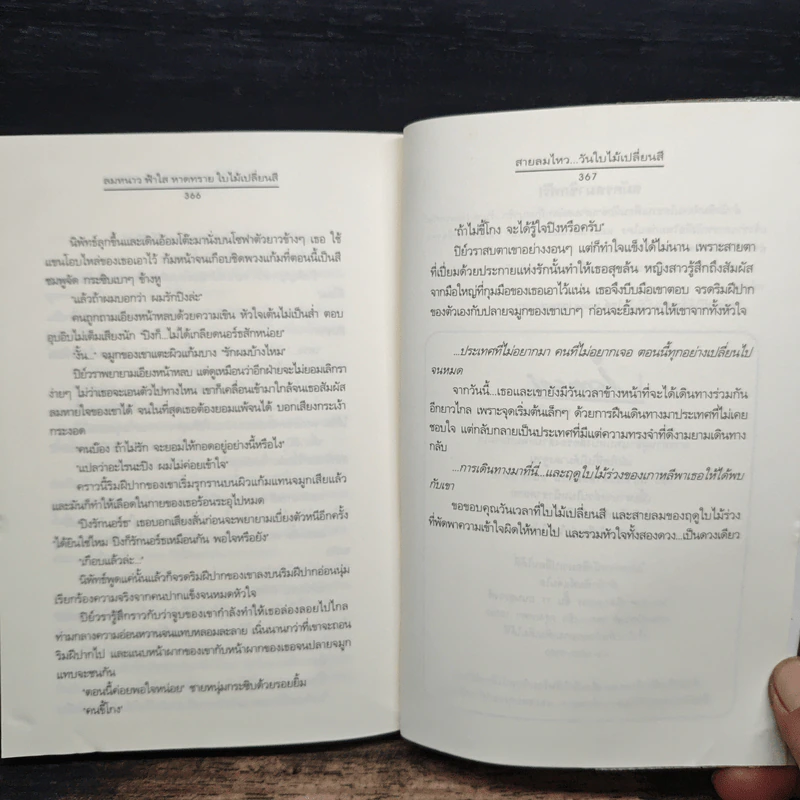 ลมหนาว ฟ้าใส หาดทราย ใบไม้เปลี่ยนสี
366
นิพัทธ์ลุกขึ้นและเดินอ้อมโต๊ะมานั่งบนโซฟาตัวยาวข้างๆ เธอ ใช้
แขนโอบไหล่ของเธอเอาไว้ ก้มหน้าจนเกือบชิดพวงแก้มที่ตอนนี้เป็นสี
ชมพูจัด กระซิบเบาๆ ข้างหู
'แล้วถ้าผมบอกว่า ผมรักปิงล่ะ'
คนถูกถามเอียงหน้าหลบด้วยความเขิน หัวใจเต้นไม่เป็นส่ำ ตอบ
อุบอิบไม่เต็มเสียงนัก 'ปิงก็...ไม่ได้เกลียดนอร์ธสักหน่อย'
'งั้น...' จมูกของเขาแตะผิวแก้มบาง 'รักผมบ้างไหม'
ปิย์วราพยายามเอียงหน้าหลบ แต่ดูเหมือนว่าอีกฝ่ายจะไม่ยอมเลิกรา
ง่ายๆ ไม่ว่าเธอจะเอนตัวไปทางไหน เขาก็เคลื่อนเข้ามาใกล้จนเธอสัมผัส
ลมหายใจของเขาได้ จนในที่สุดเธอต้องยอมแพ้จนได้ บอกเสียงกระเง้า
กระงอด
'คนบ๊อง ถ้าไม่รัก จะยอมให้กอดอยู่อย่างนี้หรือไง'
'แปลว่าอะไรนะปิง ผมไม่ค่อยเข้าใจ'
คราวนี้ริมฝีปากของเขาเริ่มรุกรานบนผิวแก้มแทนจมูกเสียแล้ว
และมันก็ทำให้เลือดในกายของเธอร้อนระอุไปหมด
'ปิงรักนอร์ธ' เธอบอกเสียงสั่นก่อนจะพยายามเบี่ยงตัวหนีอีกครั้ง
'ได้ยินใช่ไหม ปิงก็รักนอร์ธเหมือนกัน พอใจหรือยัง'
'เกือบแล้วล่ะ...'
นิพัทธ์พูดแค่นั้นแล้วก็จรดริมฝีปากของเขาลงบนริมฝีปากอ่อนนุ่ม
เรียกร้องความจริงจากคนปากแข็งจนหมดหัวใจ
ปิย์วรารู้สึกราวกับว่าจูบของเขากำลังทำให้เธอล่องลอยไปไกล
ท่ามกลางความอ่อนหวานจนแทบหลอมละลาย เนิ่นนานกว่าที่เขาจะถอน
ริมฝีปากไป และแนบหน้าผากของเขากับหน้าผากของเธอจนปลายจมูก
แทบจะชนกัน
'ตอนนี้ค่อยพอใจหน่อย' ชายหนุ่มกระซิบด้วยรอยยิ้ม
'คนขี้โกง'
สายลมไหว...วันใบไม้เปลี่ยนสี
367
'ถ้าไม่ขี้โกง จะได้รู้ใจปิงหรือครับ'
ปิย์วราสบตาเขาอย่างงอนๆ แต่ก็ทำใจแข็งได้ไม่นาน เพราะสายตา
ที่เปี่ยมด้วยประกายแห่งรักนั้นทำให้เธอสุขล้น หญิงสาวรู้สึกถึงสัมผัส
จากมือใหญ่ที่กุมมือของเธอเอาไว้แน่น เธอจึงบีบมือเขาตอบ จรดริมฝีปาก
ของตัวเองกับปลายจมูกของเขาเบาๆ ก่อนจะยิ้มหวานให้เขาจากทั้งหัวใจ
...ประเทศที่ไม่อยากมา คนที่ไม่อยากเจอ ตอนนี้ทุกอย่างเปลี่ยนไป
จนหมด
จากวันนี้...เธอและเขายังมีวันเวลาข้างหน้าที่จะได้เดินทางร่วมกัน
อีกยาวไกล เพราะจุดเริ่มต้นเล็กๆ ด้วยการฝืนเดินทางมาประเทศที่ไม่เคย
ชอบใจ แต่กลับกลายเป็นประเทศที่มีแต่ความทรงจำที่ดีงามยามเดินทาง
กลับ
...การเดินทางมาที่นี่...และฤดูใบไม้ร่วงของเกาหลีพาเธอให้ได้พบ
กับเขา
ขอขอบคุณวันเวลาที่ใบไม้เปลี่ยนสี และสายลมของฤดูใบไม้ร่วง
ที่พัดพาความเข้าใจผิดให้หายไป และรวมหัวใจทั้งสองดวง...เป็นดวงเดียว